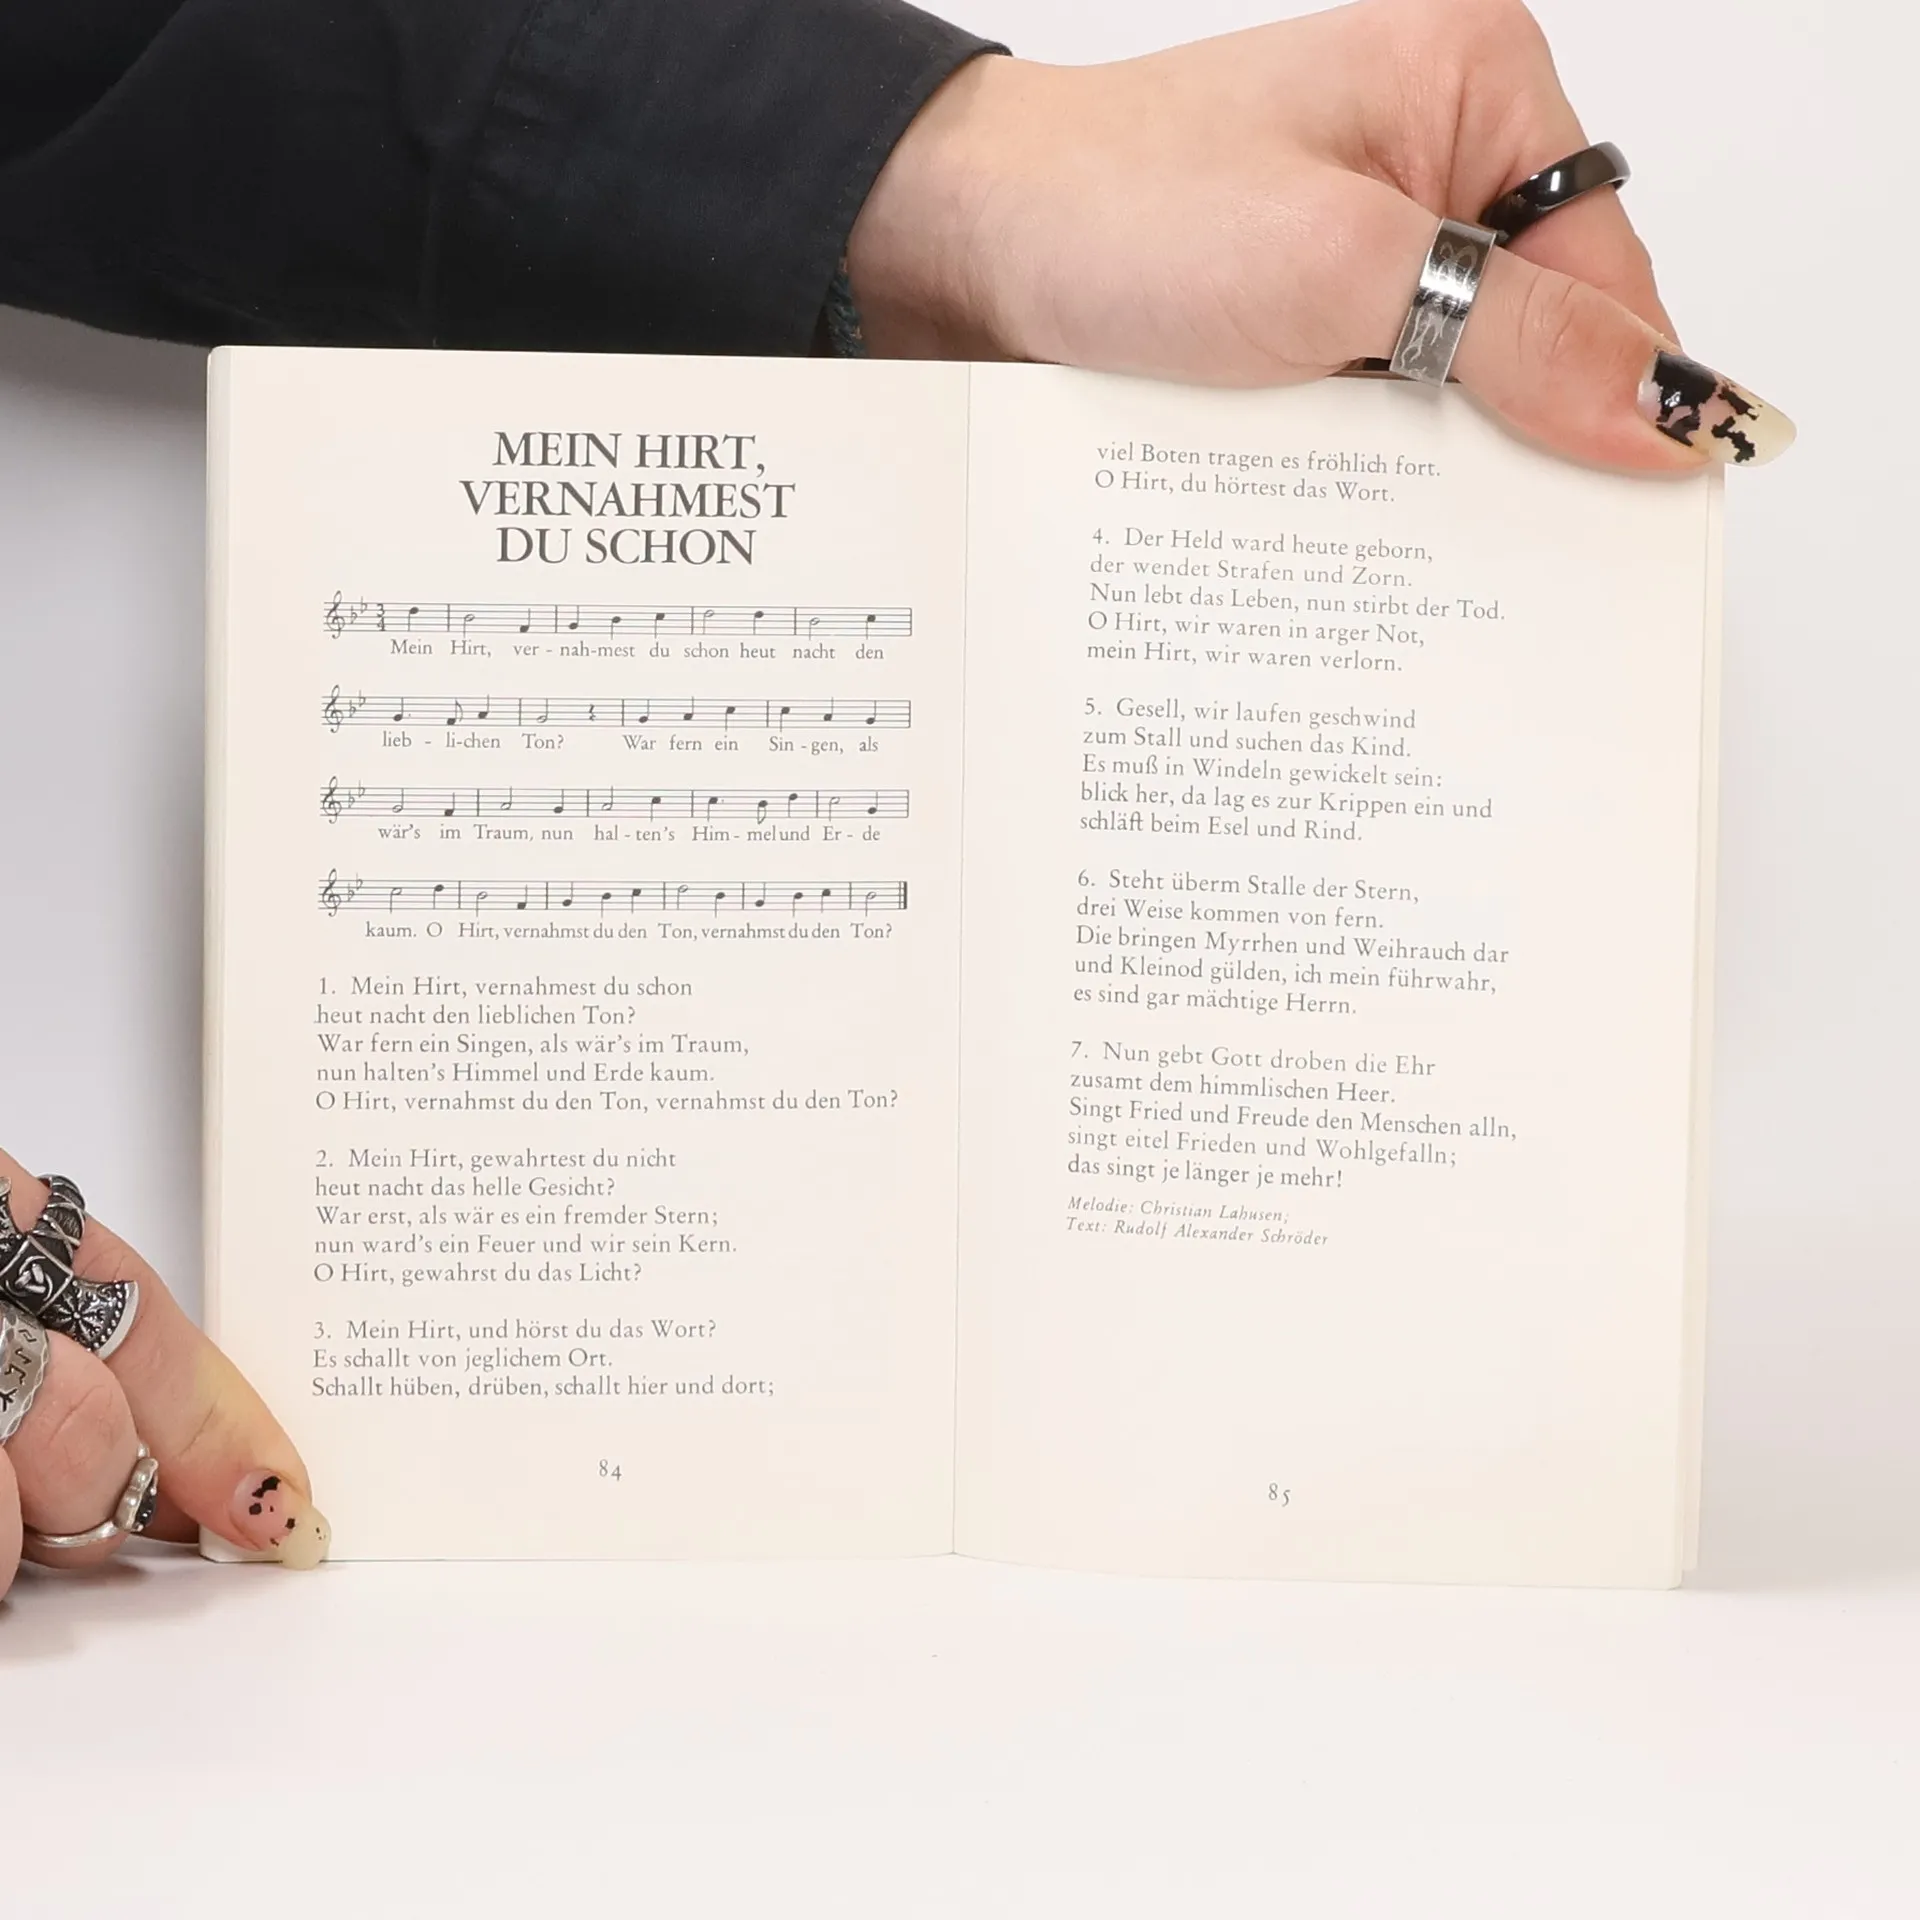 MEIN HIRT,
VERNAHMEST
DU SCHON
3
4
Mein Hirt, ver - nah-mest du schon heut nacht den
lieb - li-chen Ton? War fern ein Sin - gen, als
wär's im Traum, nun hal - ten's Him - mel und Er - de
kaum. O Hirt, vernahmst du den Ton, vernahmst du den Ton?
1. Mein Hirt, vernahmest du schon
heut nacht den lieblichen Ton?
War fern ein Singen, als wär's im Traum,
nun halten's Himmel und Erde kaum.
O Hirt, vernahmst du den Ton, vernahmst du den Ton?
2. Mein Hirt, gewahrtest du nicht
heut nacht das helle Gesicht?
War erst, als wär es ein fremder Stern;
nun ward's ein Feuer und wir sein Kern.
O Hirt, gewahrst du das Licht?
3. Mein Hirt, und hörst du das Wort?
Es schallt von jeglichem Ort.
Schallt hüben, drüben, schallt hier und dort;
84
viel Boten tragen es fröhlich fort.
O Hirt, du hörtest das Wort.
4. Der Held ward heute geborn,
der wendet Strafen und Zorn.
Nun lebt das Leben, nun stirbt der Tod.
O Hirt, wir waren in arger Not,
mein Hirt, wir waren verlorn.
5. Gesell, wir laufen geschwind
zum Stall und suchen das Kind.
Es muß in Windeln gewickelt sein:
blick her, da lag es zur Krippen ein und
schläft beim Esel und Rind.
6. Steht überm Stalle der Stern,
drei Weise kommen von fern.
Die bringen Myrrhen und Weihrauch dar
und Kleinod gülden, ich mein führwahr,
es sind gar mächtige Herrn.
7. Nun gebt Gott droben die Ehr
zusamt dem himmlischen Heer.
Singt Fried und Freude den Menschen alln,
singt eitel Frieden und Wohlgefalln;
das singt je länger je mehr!
Melodie: Christian Lahusen;
Text: Rudolf Alexander Schröder
85